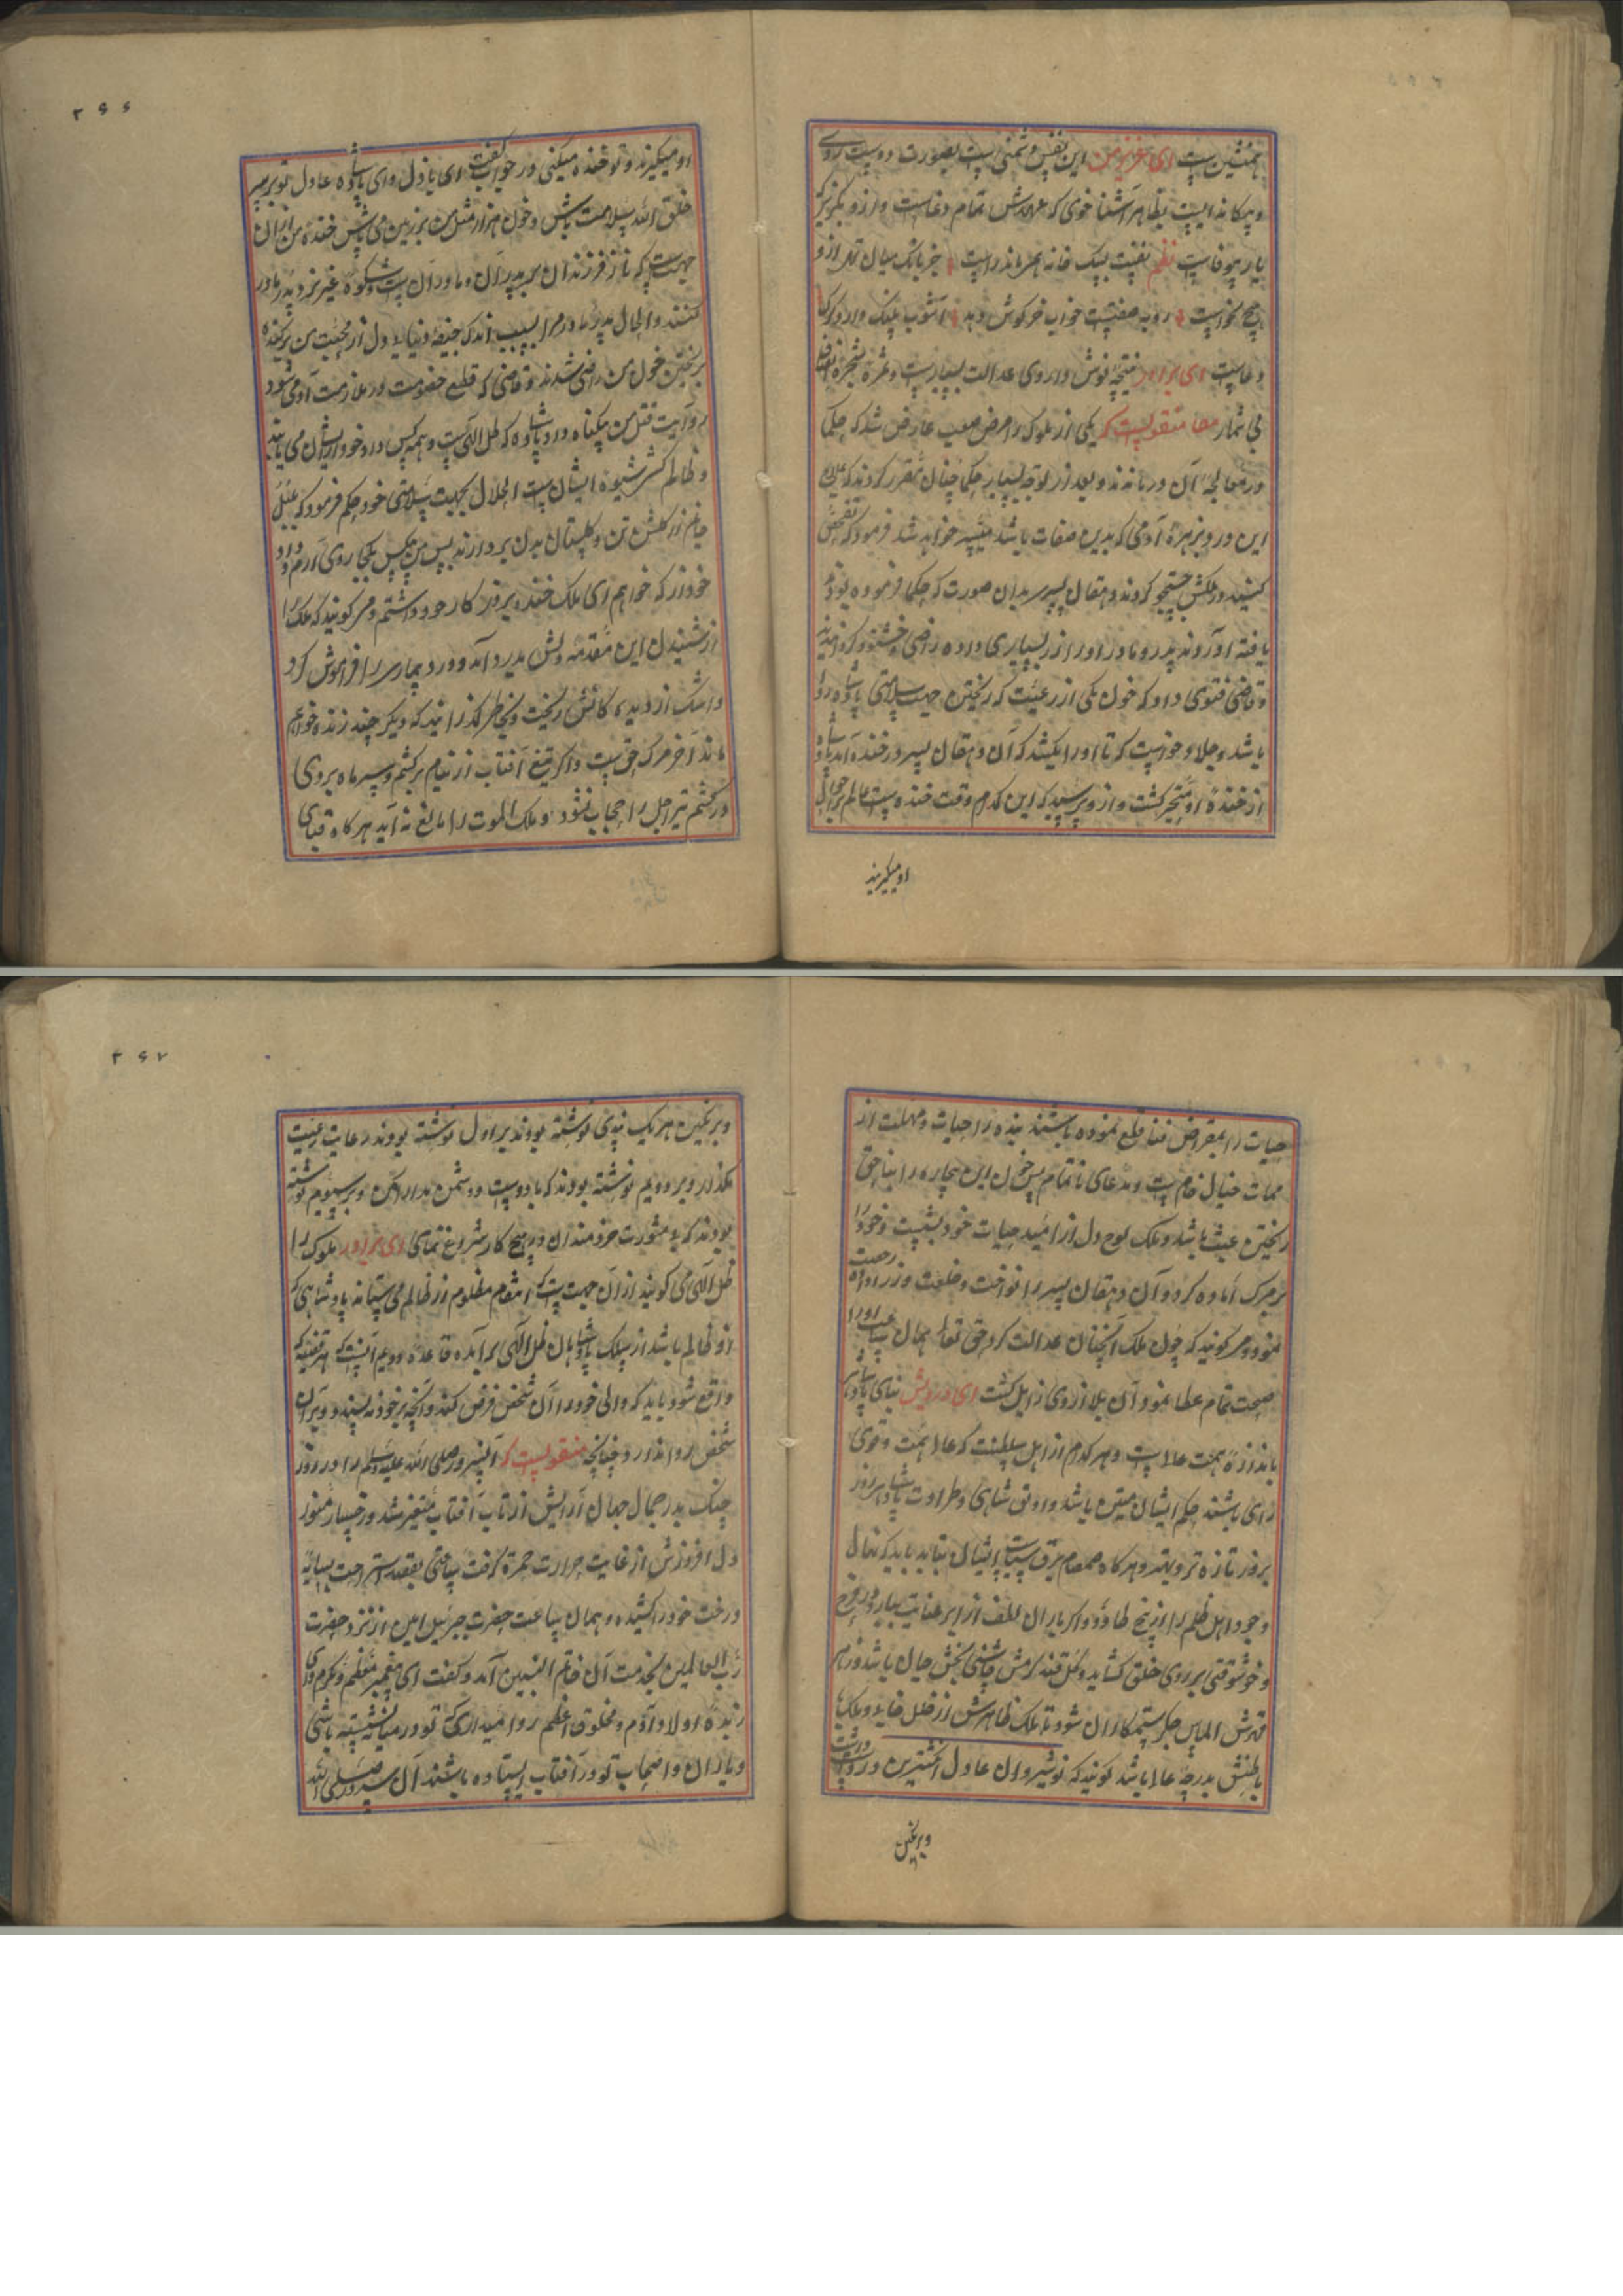 همنشین است ای عزیز من این نفس دشمنی است بصورت دوست روی
و بیکانه ایست بظاهر آشنا خوی که عهدش تمام دغاست و ازو بکریز که
یار بیوفاست نظم نفست بیک خانه
هیچ نخواست روبه صفتیست خواب خرکوش دهد آشوب پلنک دارد و کرک
دغاست ای برادر نتیجه نوش داروی عدالت بسیارست و ثمره شجره انصاف
بی شمار منقولیست که یکی از ملوک را مرض صعب عارض شد که حکما
در معالجه آن درماندند و بعد از توجه بسیار حکما چنان مقرر کردند که علاج
این درد بزهره آدمی که بدین صفات باشد میسر خواهد شد فرمود که تفحص
کنند در ملکش جستجو کردند دهقان پسر بدان صورت که حکما فرموده بودند
یافته آوردند پدر و مادر او را زر بسیاری داده راضی و خشنود کردانیدند
و قاضی فتوی داد که خون یکی از رعیت که ریختن جهت سلامتی پادشاه روا
باشد و جلاد خواست که تا او را بکشد که آن دهقان پسر در خنده آمد پادشاه
از خنده او متحیر کشت و ازو پرسید که این کدام وقت خنده است عالم بر احوال
او میکریند
۲۶۶
او میکریند و تو خنده میکنی در جواب کفت ای باذل و ای پادشاه عادل تو بر سر
خلق الله سلامت باش و خون هزار مثل من بر زمین می پاش خنده من از آن
جهت است که ناز فرزندان بر پدران و مادران است و شکوه غیر نزد پدر و مادر
کنند و الحال پدر و مادر مرا بسبب اندک جیفه دنیاوی دل از محبت من برکنده
بریختن خون من راضی شدند و قاضی که قطع خصومت در ملازمت او می شود
روایت قتل من بیکناه داد و پادشاه که ظل الهی است و همه کس داد خود از ایشان می یابند
و ظالم کشی شیوه ایشان است الحال بجهت سلامتی خود حکم فرمود که بلبل
جانم از کلشن تن و کلستان بدن بردارند پس من مسکین بکجا روی آرم و داد
خود از که خواهم ای ملک خنده بر روزکار خود داشتم و میکویند که ملک را
از شنیدن این مقدمه دلش بدرد آمد و درد بیماری را فراموش کرد
و اشک از دیده کانش ریخت و بخاطر کذرانید که دیکر چند زنده خواهم
ماند آخر مرک حق است و اکر تیغ آفتاب از نیام برکشم و سپر ماه بر روی
درکشم تیر اجل را حجاب نشود و ملک الموت را مانع نه آید هرکاه قبای
حیات را بمقراض فنا قطع نموده باشند بنده را حیات و مهلت از
ممات خیال خام است و مدعای ناتمام پس خون این بیچاره را بناحق
ریختن عبث باشد و ملک لوح دل از امید حیات خود بشست و خود را
بر مرک آماده کرد و آن دهقان پسر را نواخت و خلعت و زر داده رخصت
نمود و میکویند که چون ملک آنچنان عدالت کرد حق تعالی همان ساعت او را
صحت تمام عطا نمود و آن بلا از وی زایل کشت ای درویش بنای پادشاهی
باندازه همت عالی است و هر کدام از اهل سلطنت که عالی همت و قوی
رای باشند حکم ایشان متین باشد و رونق شاهی و طراوت پادشاهی روز
بروز تازه تر و بهتر و هرکاه صمصام برق سیاست ایشان بتابد باید که نهال
وجود اهل ظلم را از بیخ و اکر باران لطف از ابر عنایت ببارد در فرح
و خوشوقتی بر روی خلق کشاید و کل قند کرمش چاشنی بخش جان باشد و زهر
قهرش الماس جکر ستمکاران شود تا ملک ظاهرش از خلل نیابد و ملک
باطنش بدرجه عالی باشد کویند که نوشیروان عادل انکشترین در دست داشت
و بر نکین
۲۶۷
و بر نکین هر یک پندی نوشته بودند بر اول نوشته بودند رعایت رعیت
مکذار و بر دویم نوشته بودند که با دوست و دشمن مدارا کن و بر سیوم نوشته
بودند که بی مشورت خردمندان در هیچ کار شروع ننمای ای برادر ملوک را
ظل الهی می کویند از آن جهت است که انتقام مظلوم از ظالم می ستاند پادشاهی که
او ظالم باشد از سلک پادشاهان ظل الهی برآید قاعده دویم آنست که هر قضیه که
واقع شود باید که والی خود را آن شخص فرض کند و آنچه بر خود نه پسندد بر آن
شخص روا ندارد چنانچه منقولیست که آنسرور صلی الله علیه وسلم را در روز
جنک بدر جمال جهان آرایش از تاب آفتاب متغیر شد و رخسار منور
دل افروزش از غایت حرارت حمرة کرفت ساعتی بقصد استراحت بسایه
درخت خود را کشیده و همان ساعت حضرت جبرئیل امین از نزد حضرت
رب العالمین بخدمت آن خاتم النبیین آمد و کفت ای پیغمبر معظم و مکرم وای
زبده اولاد آدم و مخلوق اعظم روا میداری که تو در سایه نشسته باشی
و یاران و اصحاب تو در آفتاب ایستاده باشند آن سرور صلی الله